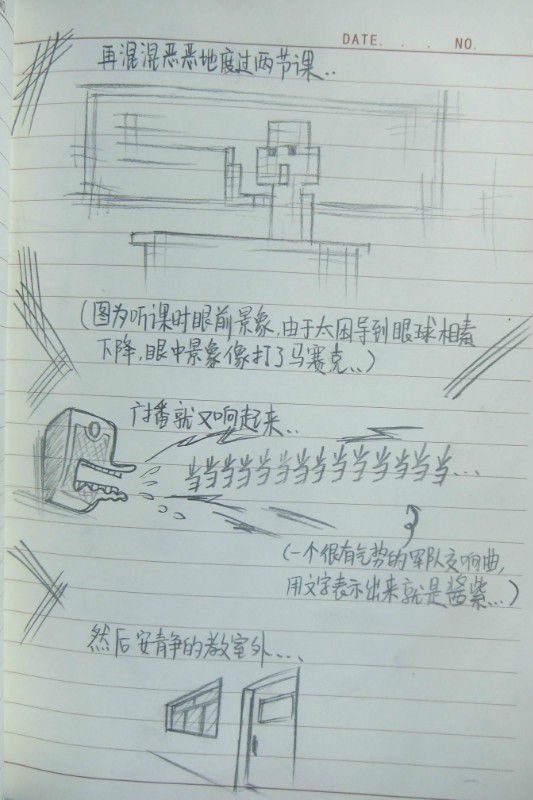 DATE. . . . NO.
再混混恶恶地度过两节课..
(图为听课时眼前景象,由于太困导到眼球相素
下降,眼中景象像打了马赛克...)
广播就又响起来...
当当当当当当当当当当当当当当当...
(一个很有气势的军队交响曲,
用文字表示出来就是酱紫...)
然后安静的教室外....